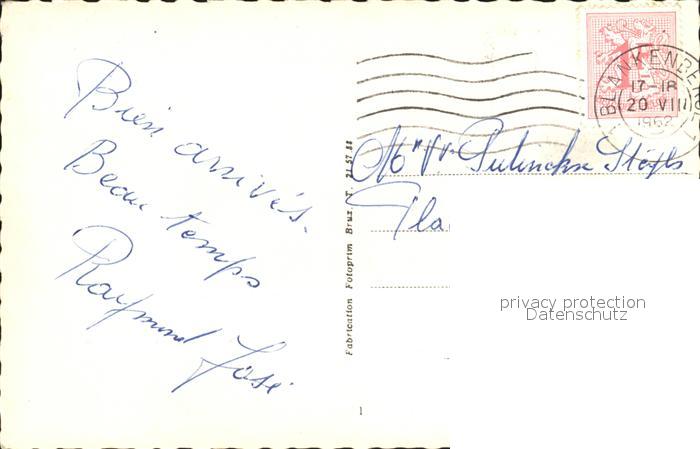 Bien arrivés.
Beau temps
Raymond José
Fabrication Fotoprim Brux. T. 21.57.88
1
BLANKENBERGE
17-18
20 VIII
1962
Pla
privacy protection
Datenschutz